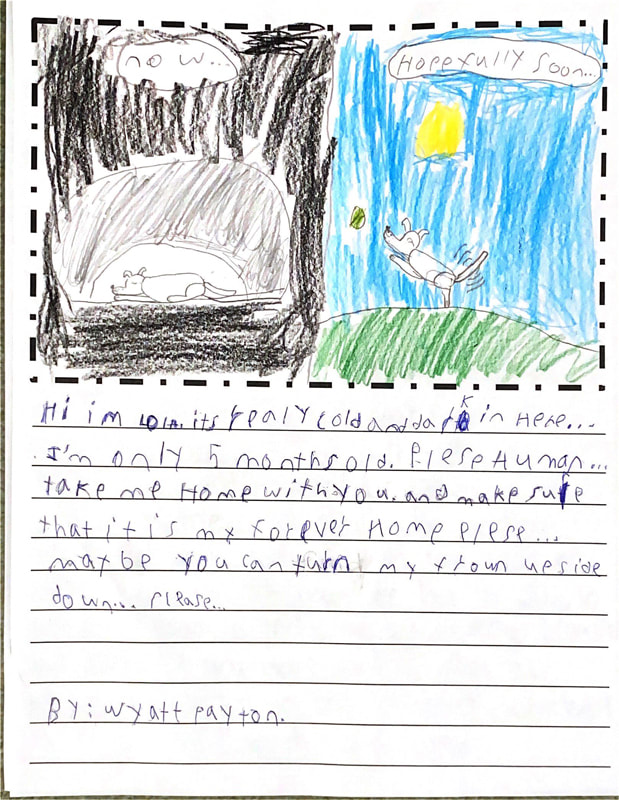 now...
Hopefully Soon...
Hi im its realy cold and dark in Here...
I'm only 5 months old. Plese Human...
take me Home with you. and make sure
that it is my forever Home Plese...
maybe you can turn my frown upside
down... Please...
By: Wyatt Payton.